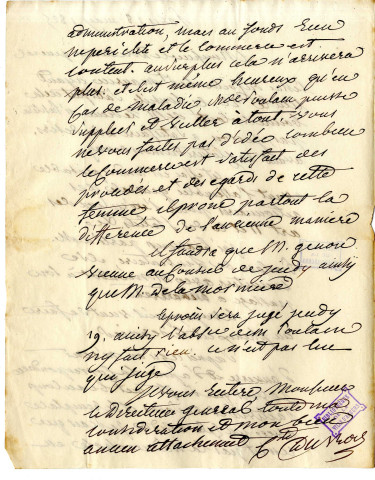 administration, mais au fonds rien
ne periclite et le commerce est
content. au surplus cela n'arrivera
plus. et il est même heureux qu'en
cas de maladie mde poulain puisse
suppléer et veiller a tout. vous
ne vous faites pas d'idée combien
le Commerce est satisfait des
procédés et des égards de cette
femme. il prone partout la
différence de l'ancienne maniere
il faudra que M. genon
vienne au Conseil de jeudy ainsy
que M. de la morinière
le procès sera jugé jeudy
19. ainsy l'absence de m poulain
n'y fait rien. ce n'est pas lui
qui juge
Je vous réitère Monsieur
le Directeur général toute ma
considération et mon bien
ancien attachement